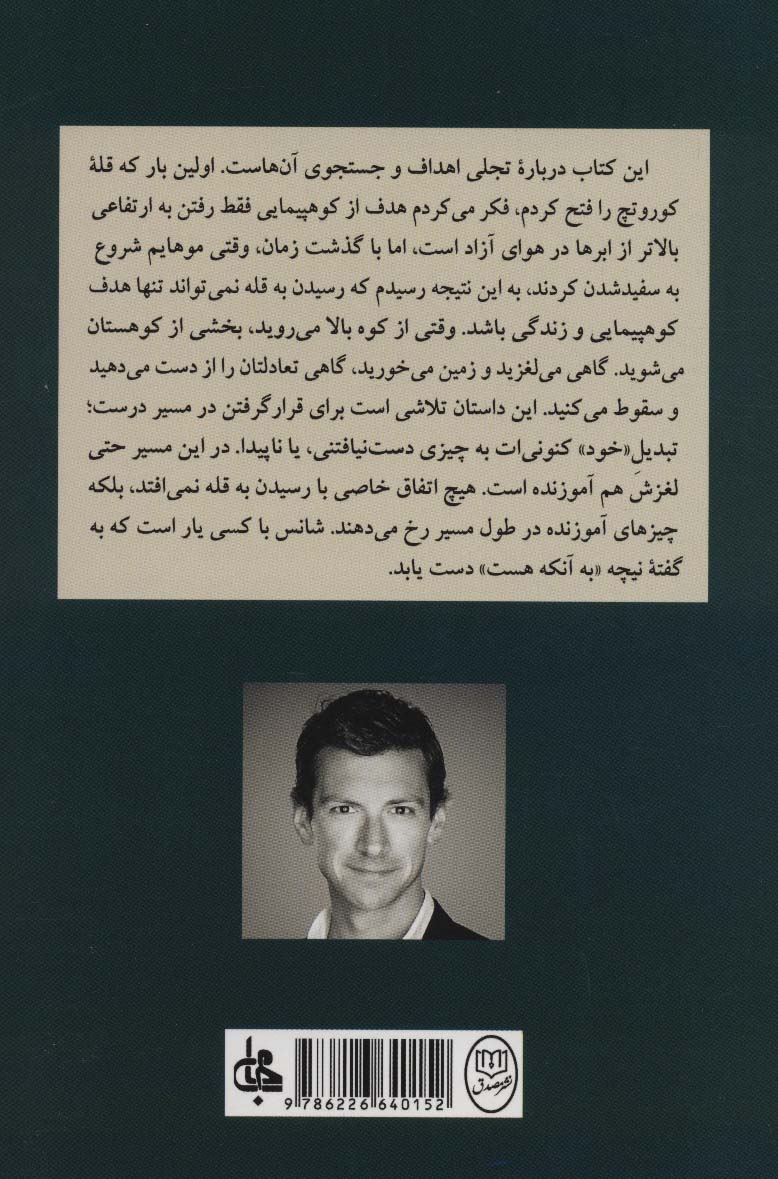 این کتاب دربارهٔ تجلی اهداف و جستجوی آن‌هاست. اولین بار که قلهٔ
کوروتچ را فتح کردم، فکر می‌کردم هدف از کوهپیمایی فقط رفتن به ارتفاعی
بالاتر از ابرها در هوای آزاد است، اما با گذشت زمان، وقتی موهایم شروع
به سفیدشدن کردند، به این نتیجه رسیدم که رسیدن به قله نمی‌تواند تنها هدف
کوهپیمایی و زندگی باشد. وقتی از کوه بالا می‌روید، بخشی از کوهستان
می‌شوید. گاهی می‌لغزید و زمین می‌خورید، گاهی تعادلتان را از دست می‌دهید
و سقوط می‌کنید. این داستان تلاشی است برای قرارگرفتن در مسیر درست؛
تبدیلِ «خود» کنونی‌ات به چیزی دست‌نیافتنی، یا ناپیدا. در این مسیر حتی
لغزش هم آموزنده است. هیچ اتفاق خاصی با رسیدن به قله نمی‌افتد، بلکه
چیزهای آموزنده در طول مسیر رخ می‌دهند. شانس با کسی یار است که به
گفتهٔ نیچه «به آنکه هست» دست یابد.
نشر صدق
9 786226 640152